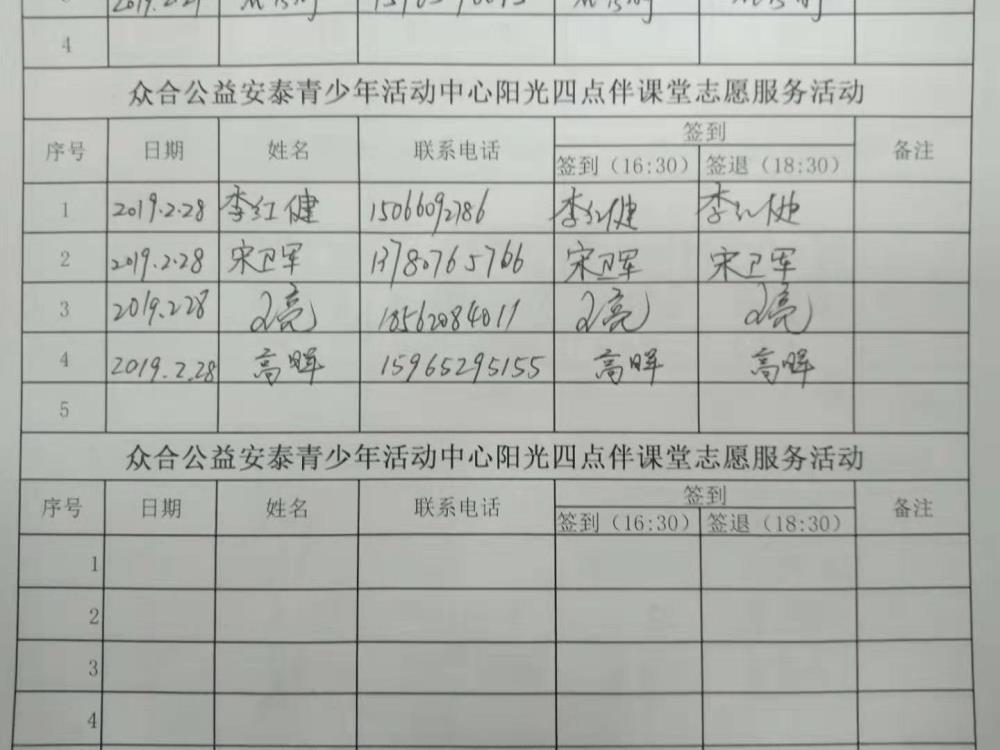 4
众合公益安泰青少年活动中心阳光四点伴课堂志愿服务活动
序号 日期 姓名 联系电话 签到 备注
签到（16:30） 签退（18:30）
1 2019.2.28 李红健 15066092786 李红健 李红健
2 2019.2.28 宋卫军 13780765766 宋卫军 宋卫军
3 2019.2.28 亮 18562084011 亮 亮
4 2019.2.28 高晖 15965295155 高晖 高晖
5
众合公益安泰青少年活动中心阳光四点伴课堂志愿服务活动
序号 日期 姓名 联系电话 签到 备注
签到（16:30） 签退（18:30）
1
2
3
4